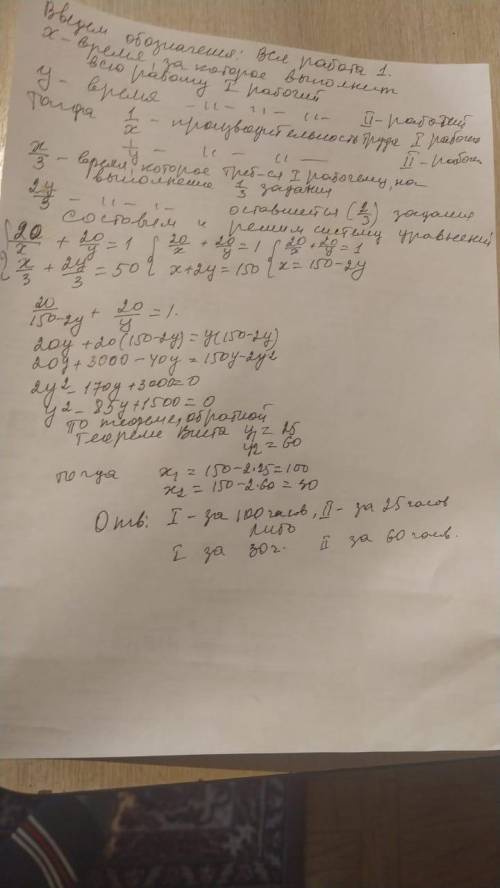 Введем обозначения: Вся работа 1.
x - время, за которое выполнит
всю работу I рабочий
y - время -"- -"- -"- II-рабочий
Тогда 1/x - производительность труда I рабочего
1/y - -"- -"- II-рабоч.
x/3 - время, которое треб-ся I рабочему, на
выполнение 1/3 задания
2y/3 - -"- -"- оставшегося (2/3) задания
Составим и решим систему уравнений
{20/x + 20/y = 1 {20/x + 20/y = 1 {20/x + 20/y = 1
{x/3 + 2y/3 = 50 {x + 2y = 150 {x = 150 - 2y
20/(150-2y) + 20/y = 1.
20y + 20(150-2y) = y(150-2y)
20y + 3000 - 40y = 150y - 2y²
2y² - 170y + 3000 = 0
y² - 85y + 1500 = 0
По теореме, обратной
теореме Виета y₁ = 25
y₂ = 60
тогда x₁ = 150 - 2·25 = 100
x₂ = 150 - 2·60 = 30
Отв: I - за 100 часов, II - за 25 часов
либо
I за 30ч. II за 60 часов.